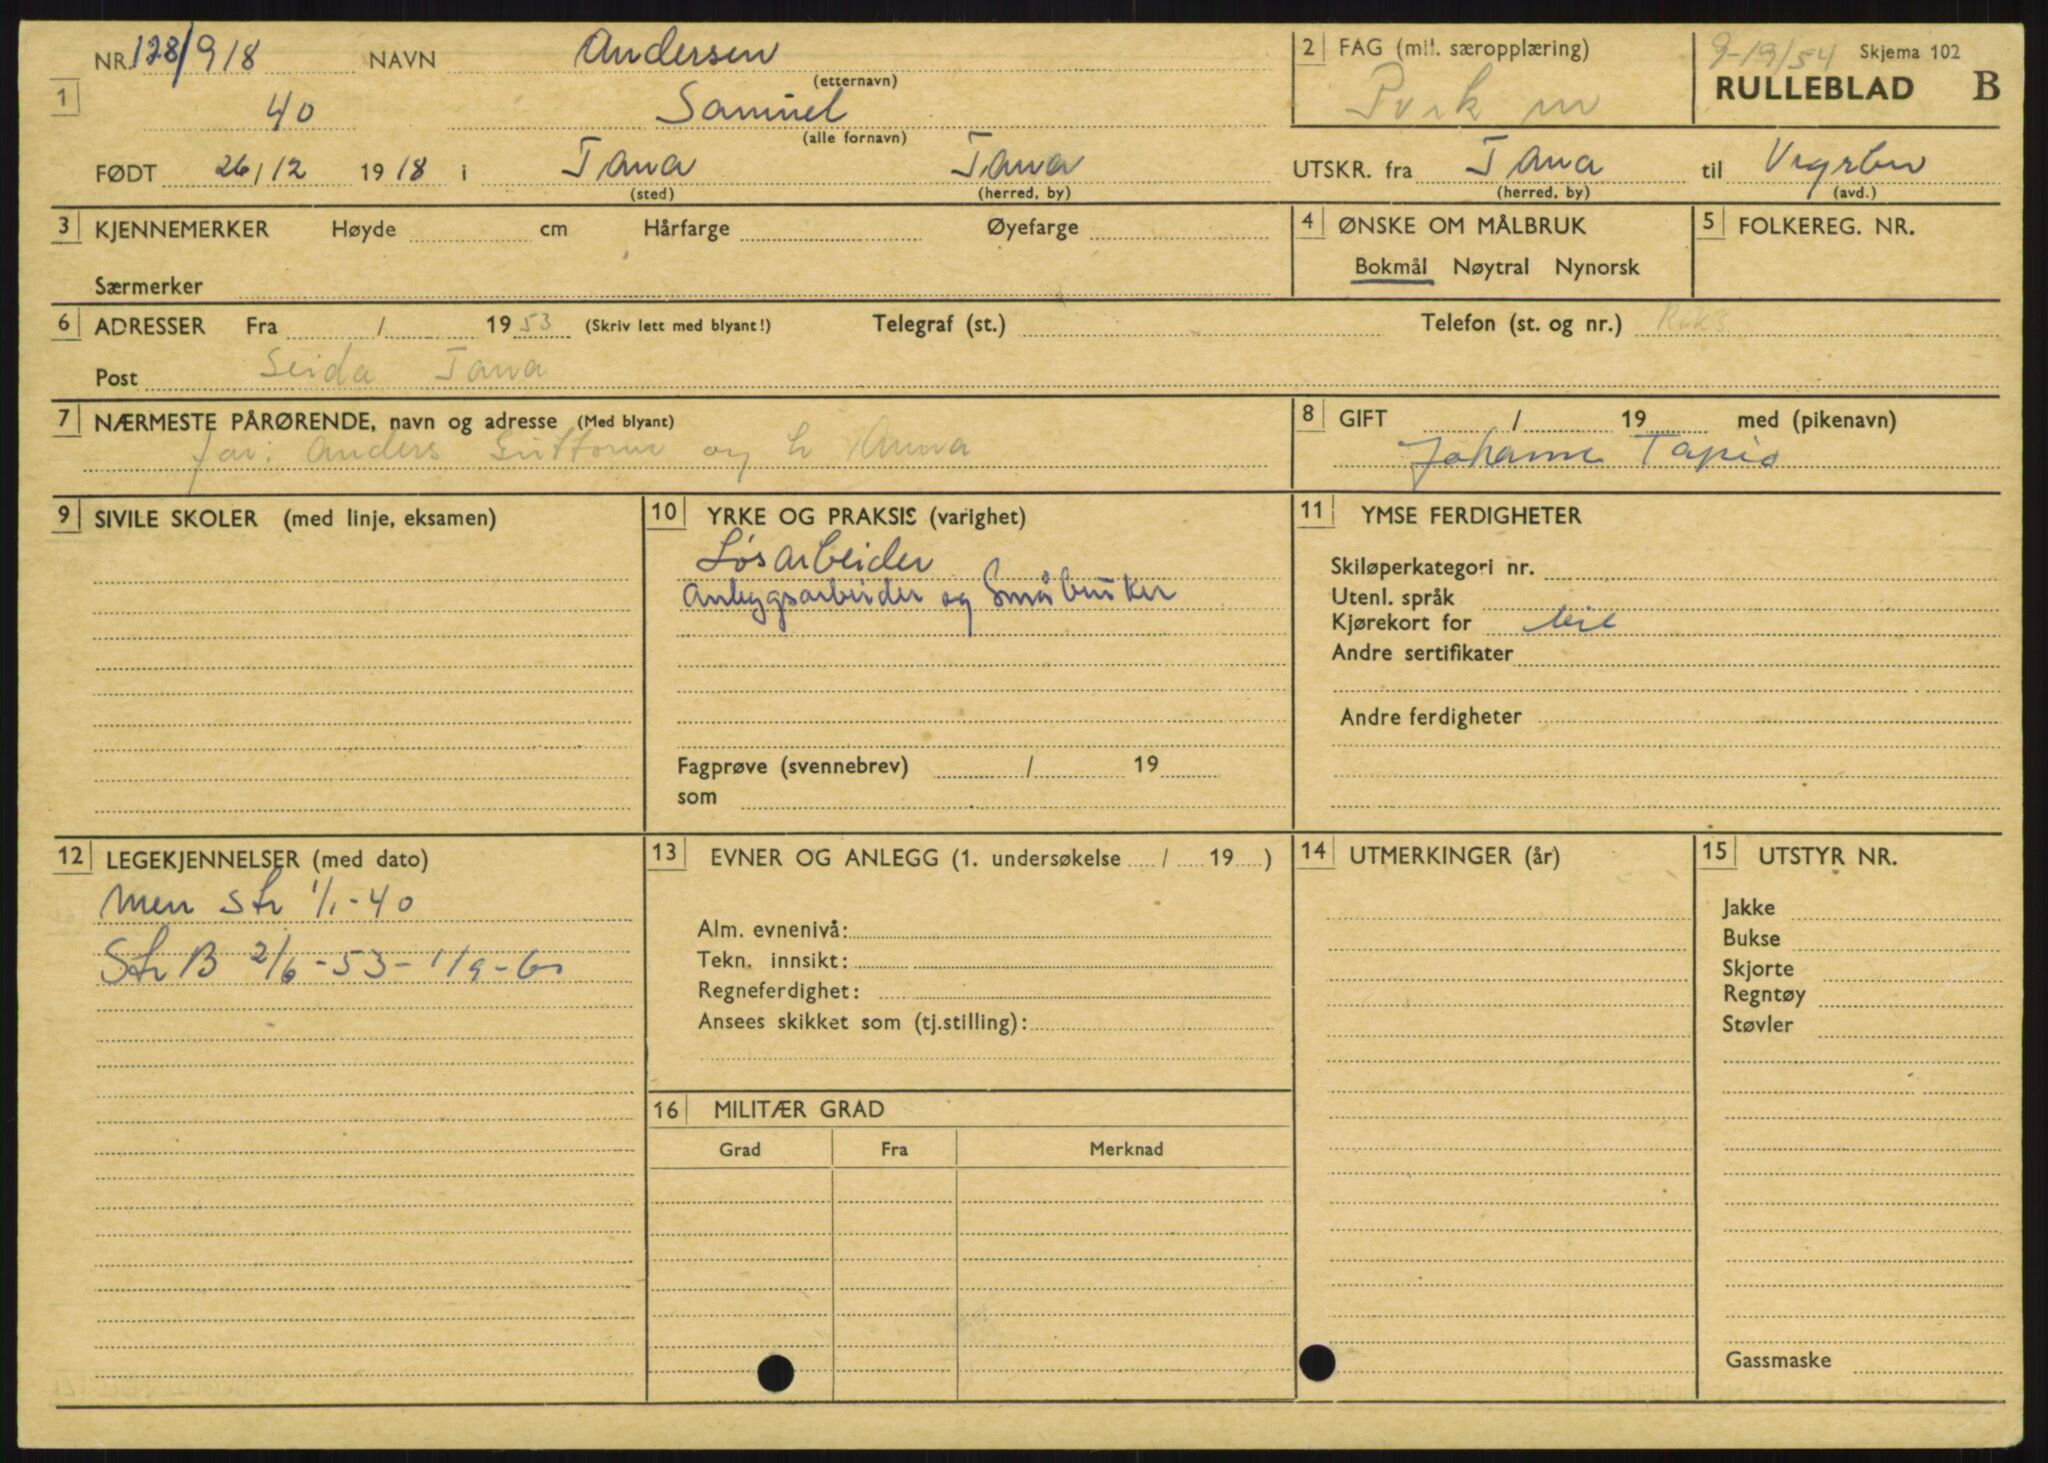 NR. 128/918 NAVN Andersen 2 FAG (mil. særopplæring) 9-19/54 Skjema 102
(etternavn) RULLEBLAD B
1 40 Samuel
(alle fornavn)
FØDT 26/12 1918 i Tana Tana UTSKR. fra Tana til
(sted) (herred, by) (herred, by) (avd.)
3 KJENNEMERKER Høyde cm Hårfarge Øyefarge 4 ØNSKE OM MÅLBRUK 5 FOLKEREG. NR.
Bokmål Nøytral Nynorsk
Særmerker
6 ADRESSER Fra / 1953 (Skriv lett med blyant!) Telegraf (st.) Telefon (st. og nr.) Riks
Post Seida Tana
7 NÆRMESTE PÅRØRENDE, navn og adresse (Med blyant) 8 GIFT / 19 med (pikenavn)
far: Anders Guttorm og h Anna Johanne Tapio
9 SIVILE SKOLER (med linje, eksamen) 10 YRKE OG PRAKSIS (varighet) 11 YMSE FERDIGHETER
Løsarbeider
Skiløperkategori nr.
Anleggsarbeider og Småbruker
Utenl. språk
Kjørekort for bil
Andre sertifikater
Andre ferdigheter
Fagprøve (svennebrev) / 19
som
12 LEGEKJENNELSER (med dato) 13 EVNER OG ANLEGG (1. undersøkelse / 19 ) 14 UTMERKINGER (år) 15 UTSTYR NR.
Men Str 1/1-40
Jakke
Alm. evnenivå:
Bukse
Str B 2/6-53-1/9-60
Tekn. innsikt:
Skjorte
Regneferdighet:
Regntøy
Ansees skikket som (tj.stilling):
Støvler
16 MILITÆR GRAD
Grad Fra Merknad
Gassmaske